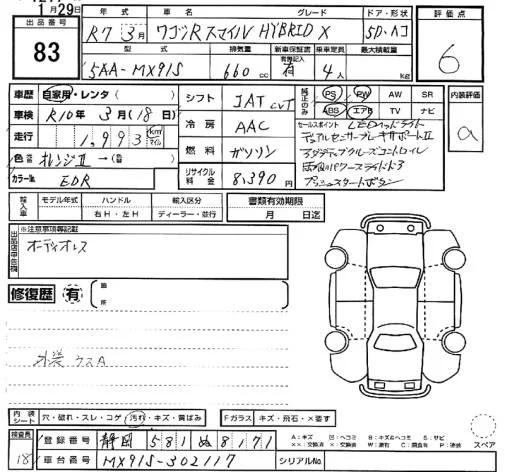 1月29日
出品番号
83
年式 車名 グレード ドア・形状
R7 3月 ワゴンRスマイル HYBRID X 5D・ハコ
型式 排気量 新車保証書 乗車定員 最大積載量
有効記入
5AA-MX91S 660cc 有 4人 kg
評価点
6
車歴 自家用・レンタ( )
車検 R10年3月(18日)
走行 1,993 km マイル
色 オレンジII →( )
カラーNo. EDR
シフト IAT CVT
冷房 AAC
燃料 ガソリン
リサイクル料金 8,390円
純正のみ PS PW AW SR
ABS エアB TV ナビ
セールスポイント LEDヘッドライト
デュアルセンサーブレーキサポートII
アダプティブクルーズコントロイル
両側パワースライドドア
プッシュスタートボタン
内装評価
a
輸入車 モデル年式 ハンドル 輸入区分
年 右H・左H ディーラー・並行
書類有効期限
月 日迄
出品店申告欄
※注意事項等記載
オーディオレス
修復歴 有
箇所
外装 ウスA
内装シート 穴・破れ・スレ・コゲ・汚れ・キズ・黄ばみ
Fガラス キズ・飛石・×要す
検査員
18
登録番号 静岡 581 ぬ 8171
車台番号 MX91S-302117
シリアルNo.
A:キズ U:ヘコミ B:キズ&ヘコミ S:サビ
××:交換済 ×:要交換 W:波有 C:腐食有 P:塗装
スペア